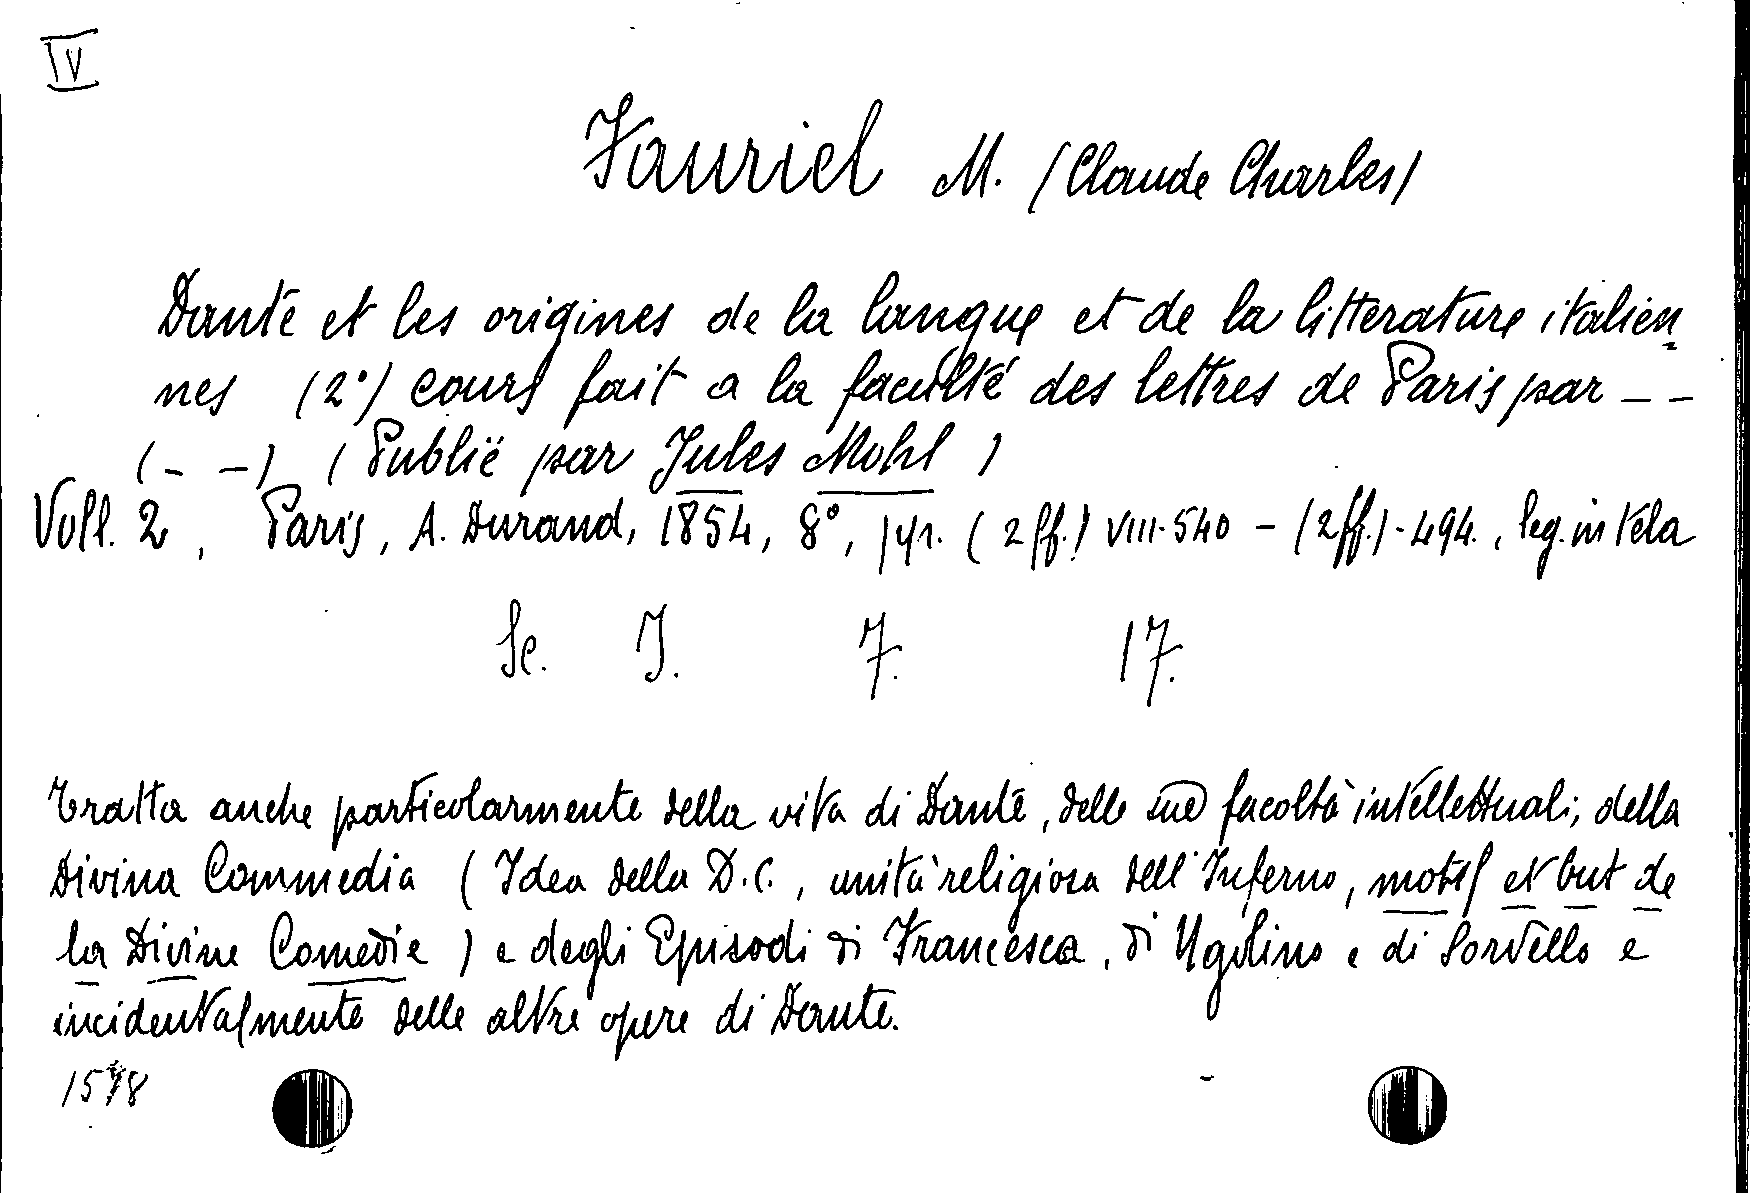 IV
Fauriel M. (Claude Charles)
Dante et les origines de la langue et de la litterature italien
nes (2°) cours fait a la faculté des lettres de Paris par _ _
(_ _) (Publié par Jules Mohl)
Voll. 2, Paris, A. Durand, 1854, 8°, (ff.) VIII-540 - (2ff.)-494., leg. in tela
Sc. J. 7. 17.
Tratta anche particolarmente della vita di Dante, delle sue facoltà intellettuali, della
Divina Commedia (Idea della D.C., unità religiosa dell'Inferno, motif et but de
la Divine Comedie) e degli Episodi di Francesca, di Ugolino e di Sordello e
incidentalmente delle altre opere di Dante.